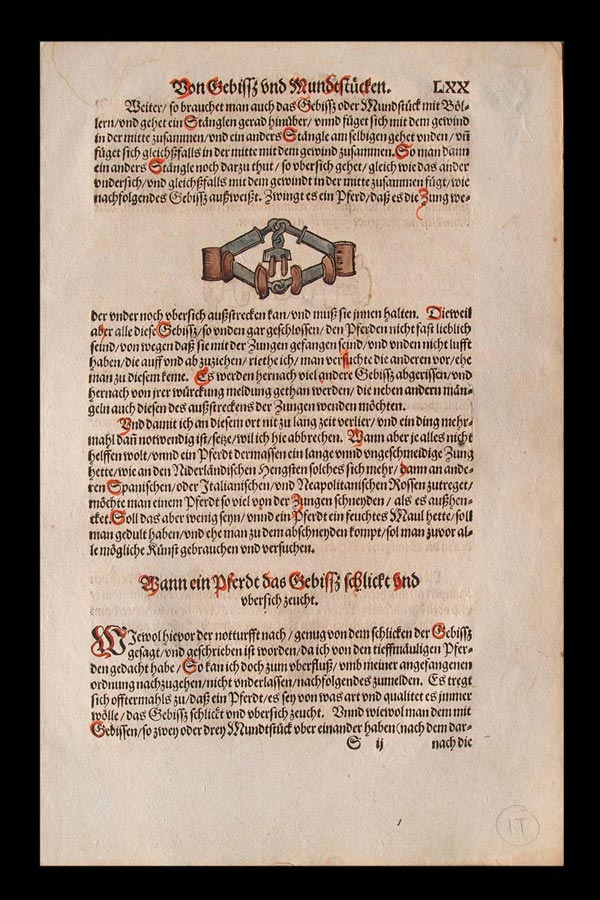 Von Gebissz vnd Mundtstücken. LXX
Weiter/ so brauchet man auch das Gebissz oder Mundstück mit Böl-
lern/vnd gehet ein Stänglen gerad hinüber/ vnnd füget sich mit dem gewind
in der mitte zusammen/vnd ein anders Stängle am selbigen gehet vnden/ vñ
füget sich gleichßfalls in der mitte mit dem gewind zusammen. So man dann
ein anders Stängle noch darzu thut/ so vbersich gehet/ gleich wie das ander
vndersich/vnd gleichßfalls mit dem gewindt in der mitte zusammen fügt/wie
nachfolgendes Gebissz außweißt. Zwingt es ein Pferd/daß es die Zung we-
der vnder noch vbersich außstrecken kan/vnd muß sie jnnen halten. Dieweil
aber alle diese Gebissz/so vnden gar geschlossen/ den Pferden nicht fast lieblich
seind/von wegen daß sie mit der Zungen gefangen seind/vnd vnden nicht lufft
haben/die auff vnd ab zuziehen/ riethe ich/ man versuchte die anderen vor/ehe
man zu diesem keme. Es werden hernach viel andere Gebissz abgerissen/vnd
hernach von jrer würckung meldung gethan werden/ die neben andern män-
geln auch diesen des außstreckens der Zungen wenden möchten.
Vnd damit ich an diesem ort nit zu lang zeit verlier/ vnd ein ding mehr-
mahl dañ notwendig ist/ setze/ wil ich hie abbrechen. Wann aber je alles nicht
helffen wolt/vnnd ein Pferdt dermassen ein lange vnnd vngeschmeidige Zung
hette/wie an den Niderländischen Hengsten solches sich mehr/ dann an ande-
ren Spanischen/oder Italianischen/vnd Neapolitanischen Rossen zutreget/
möchte man einem Pferdt so viel von der Zungen schneyden/ als es außhen-
cket. Soll das aber wenig seyn/ vnnd ein Pferdt ein feuchtes Maul hette/soll
man gedult haben/vnd ehe man zu dem abschneyden kompt/sol man zuvor al-
le mögliche Künst gebrauchen vnd versuchen.
Wann ein Pferdt das Gebissz schlickt vnd
vbersich zeucht.
WJewol hievor der notturfft nach/ genug von dem schlicken der Gebissz
gesagt/vnd geschrieben ist worden/da ich von den tieffmäuligen Pfer-
den gedacht habe/ So kan ich doch zum vberfluß/ vmb meiner angefangenen
ordnung nachzugehen/nicht vnderlassen/nachfolgendes zumelden. Es tregt
sich offtermahls zu/daß ein Pferdt/es sey von was art vnd qualitet es jmmer
wölle/ das Gebissz schlickt vnd vbersich zeucht. Vnnd wiewol man dem mit
Gebissen/so zwey oder drey Mundtstück vber einander haben (nach dem dar-
S ij nach die
IT